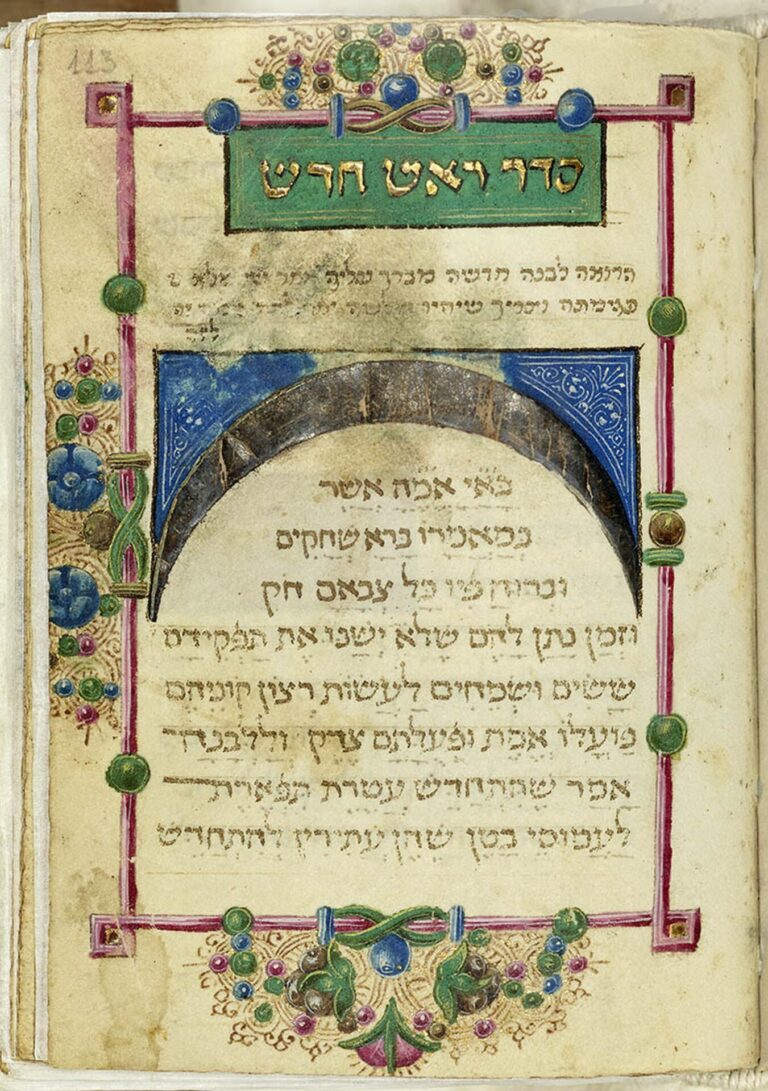 113
סדר ראש חדש
הרואה לבנה חדשה מברך עליה
פגימתה וצריך שיהיו
בא"י אמ"ה אשר
במאמרו ברא שחקים
וברוח פיו כל צבאם חק
וזמן נתן להם שלא ישנו את תפקידם
ששים ושמחים לעשות רצון קוניהם
פועלי אמת ופעלתם צדק וללבנה
אמר שתתחדש עטרת תפארת
לעמוסי בטן שהן עתידין להתחדש